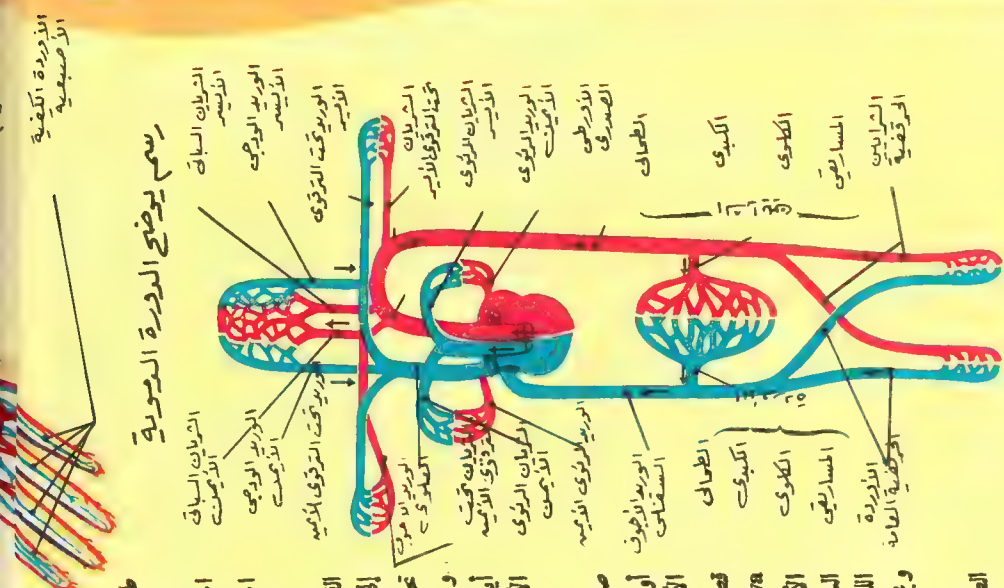 الأوردة الكفية
الأصبعية
رسم يوضح الدورة الدموية
الشريان السباتى
الأيسر
الوريد الودجى
الأيسر
الوريد تحت الترقوى
الأيسر
الشريان
تحت الترقوى الأيسر
الشريان الرئوى
الأيسر
الوريد الرئوى
الأيمن
الأورطى
الصدرى
الطحالى
الكبدى
الكلوى
المساريقى
الشرايين
الحرقفية
الشريان السباتى
الأيمن
الوريد الودجى
الأيمن
الوريد تحت الترقوى الأيمن
الوريد الأجوف
العلوى
الشريان تحت
الترقوى الأيمن
الشريان الرئوى
الأيمن
الوريد الرئوى الأيمن
الوريد الأجوف
السفلى
الطحالى
الكبدى
الكلوى
المساريقى
الأوردة
الحرقفية العامة